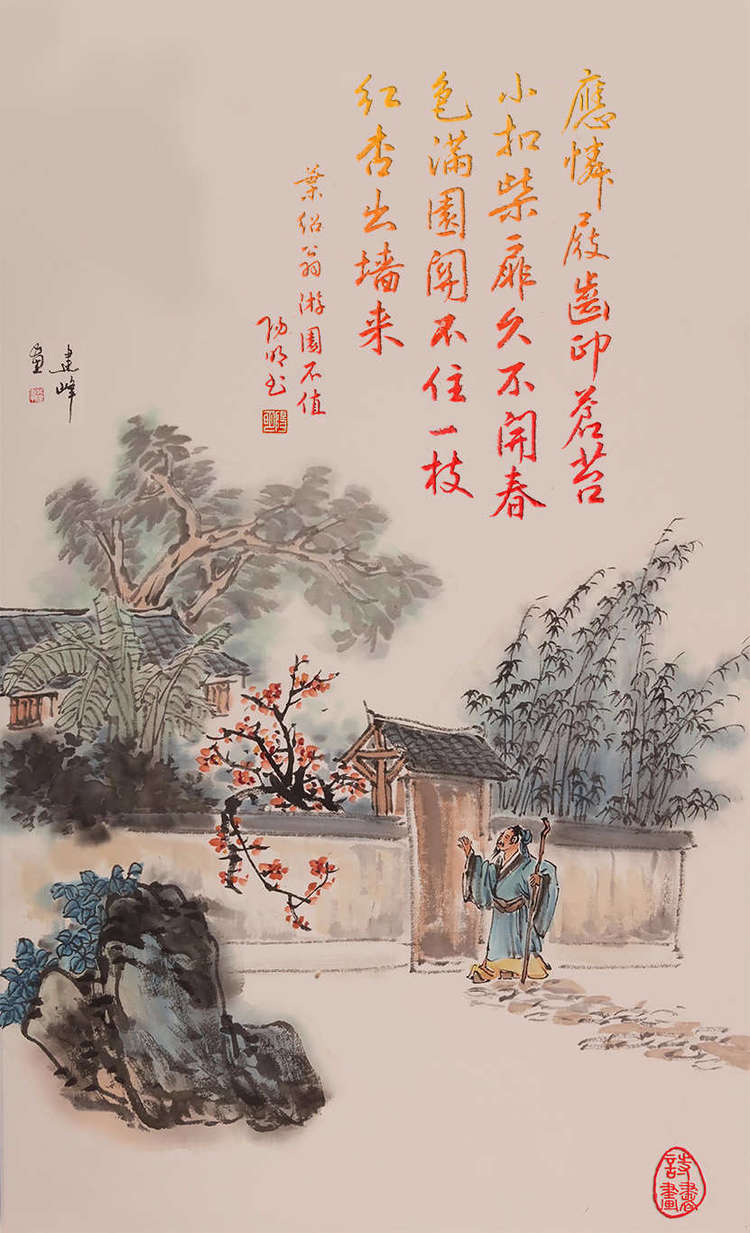 應憐屐齒印蒼苔
小扣柴扉久不開春
色滿園関不住一枝
红杏出墙来
葉绍翁游園不值
阳明书
建峰
畫
詩書畫